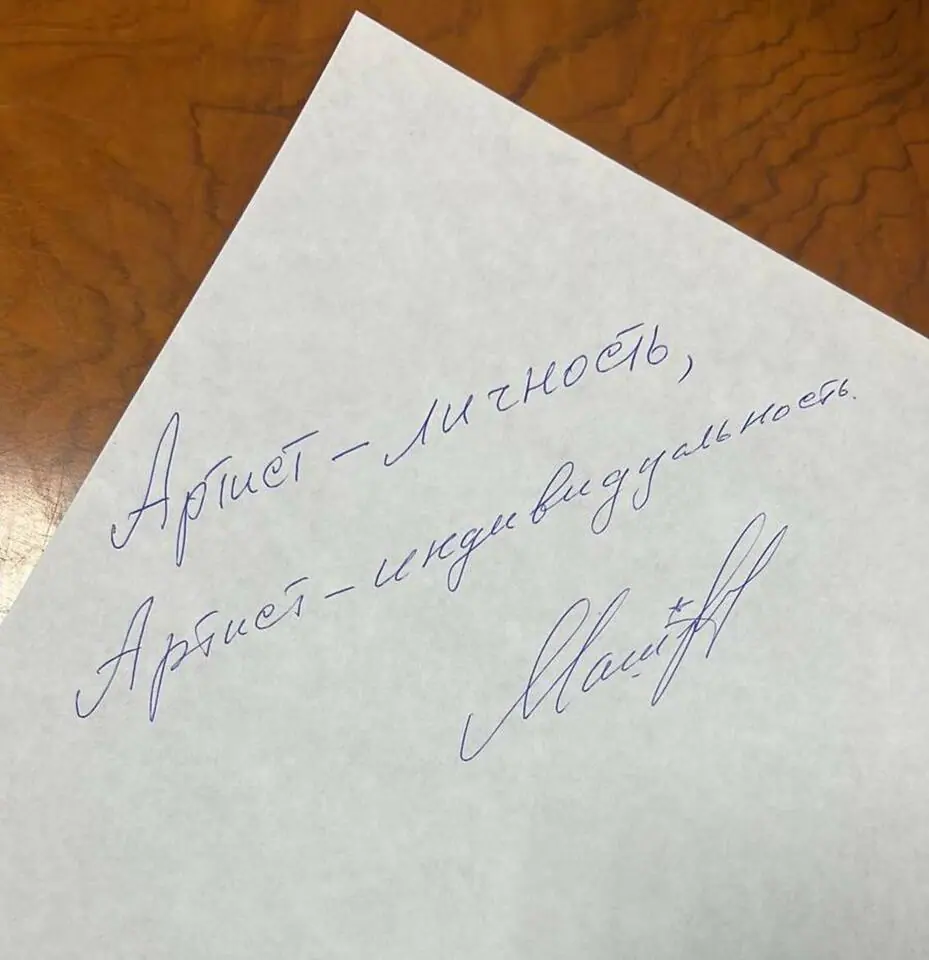 Артист – личность,
Артист – индивидуальность.